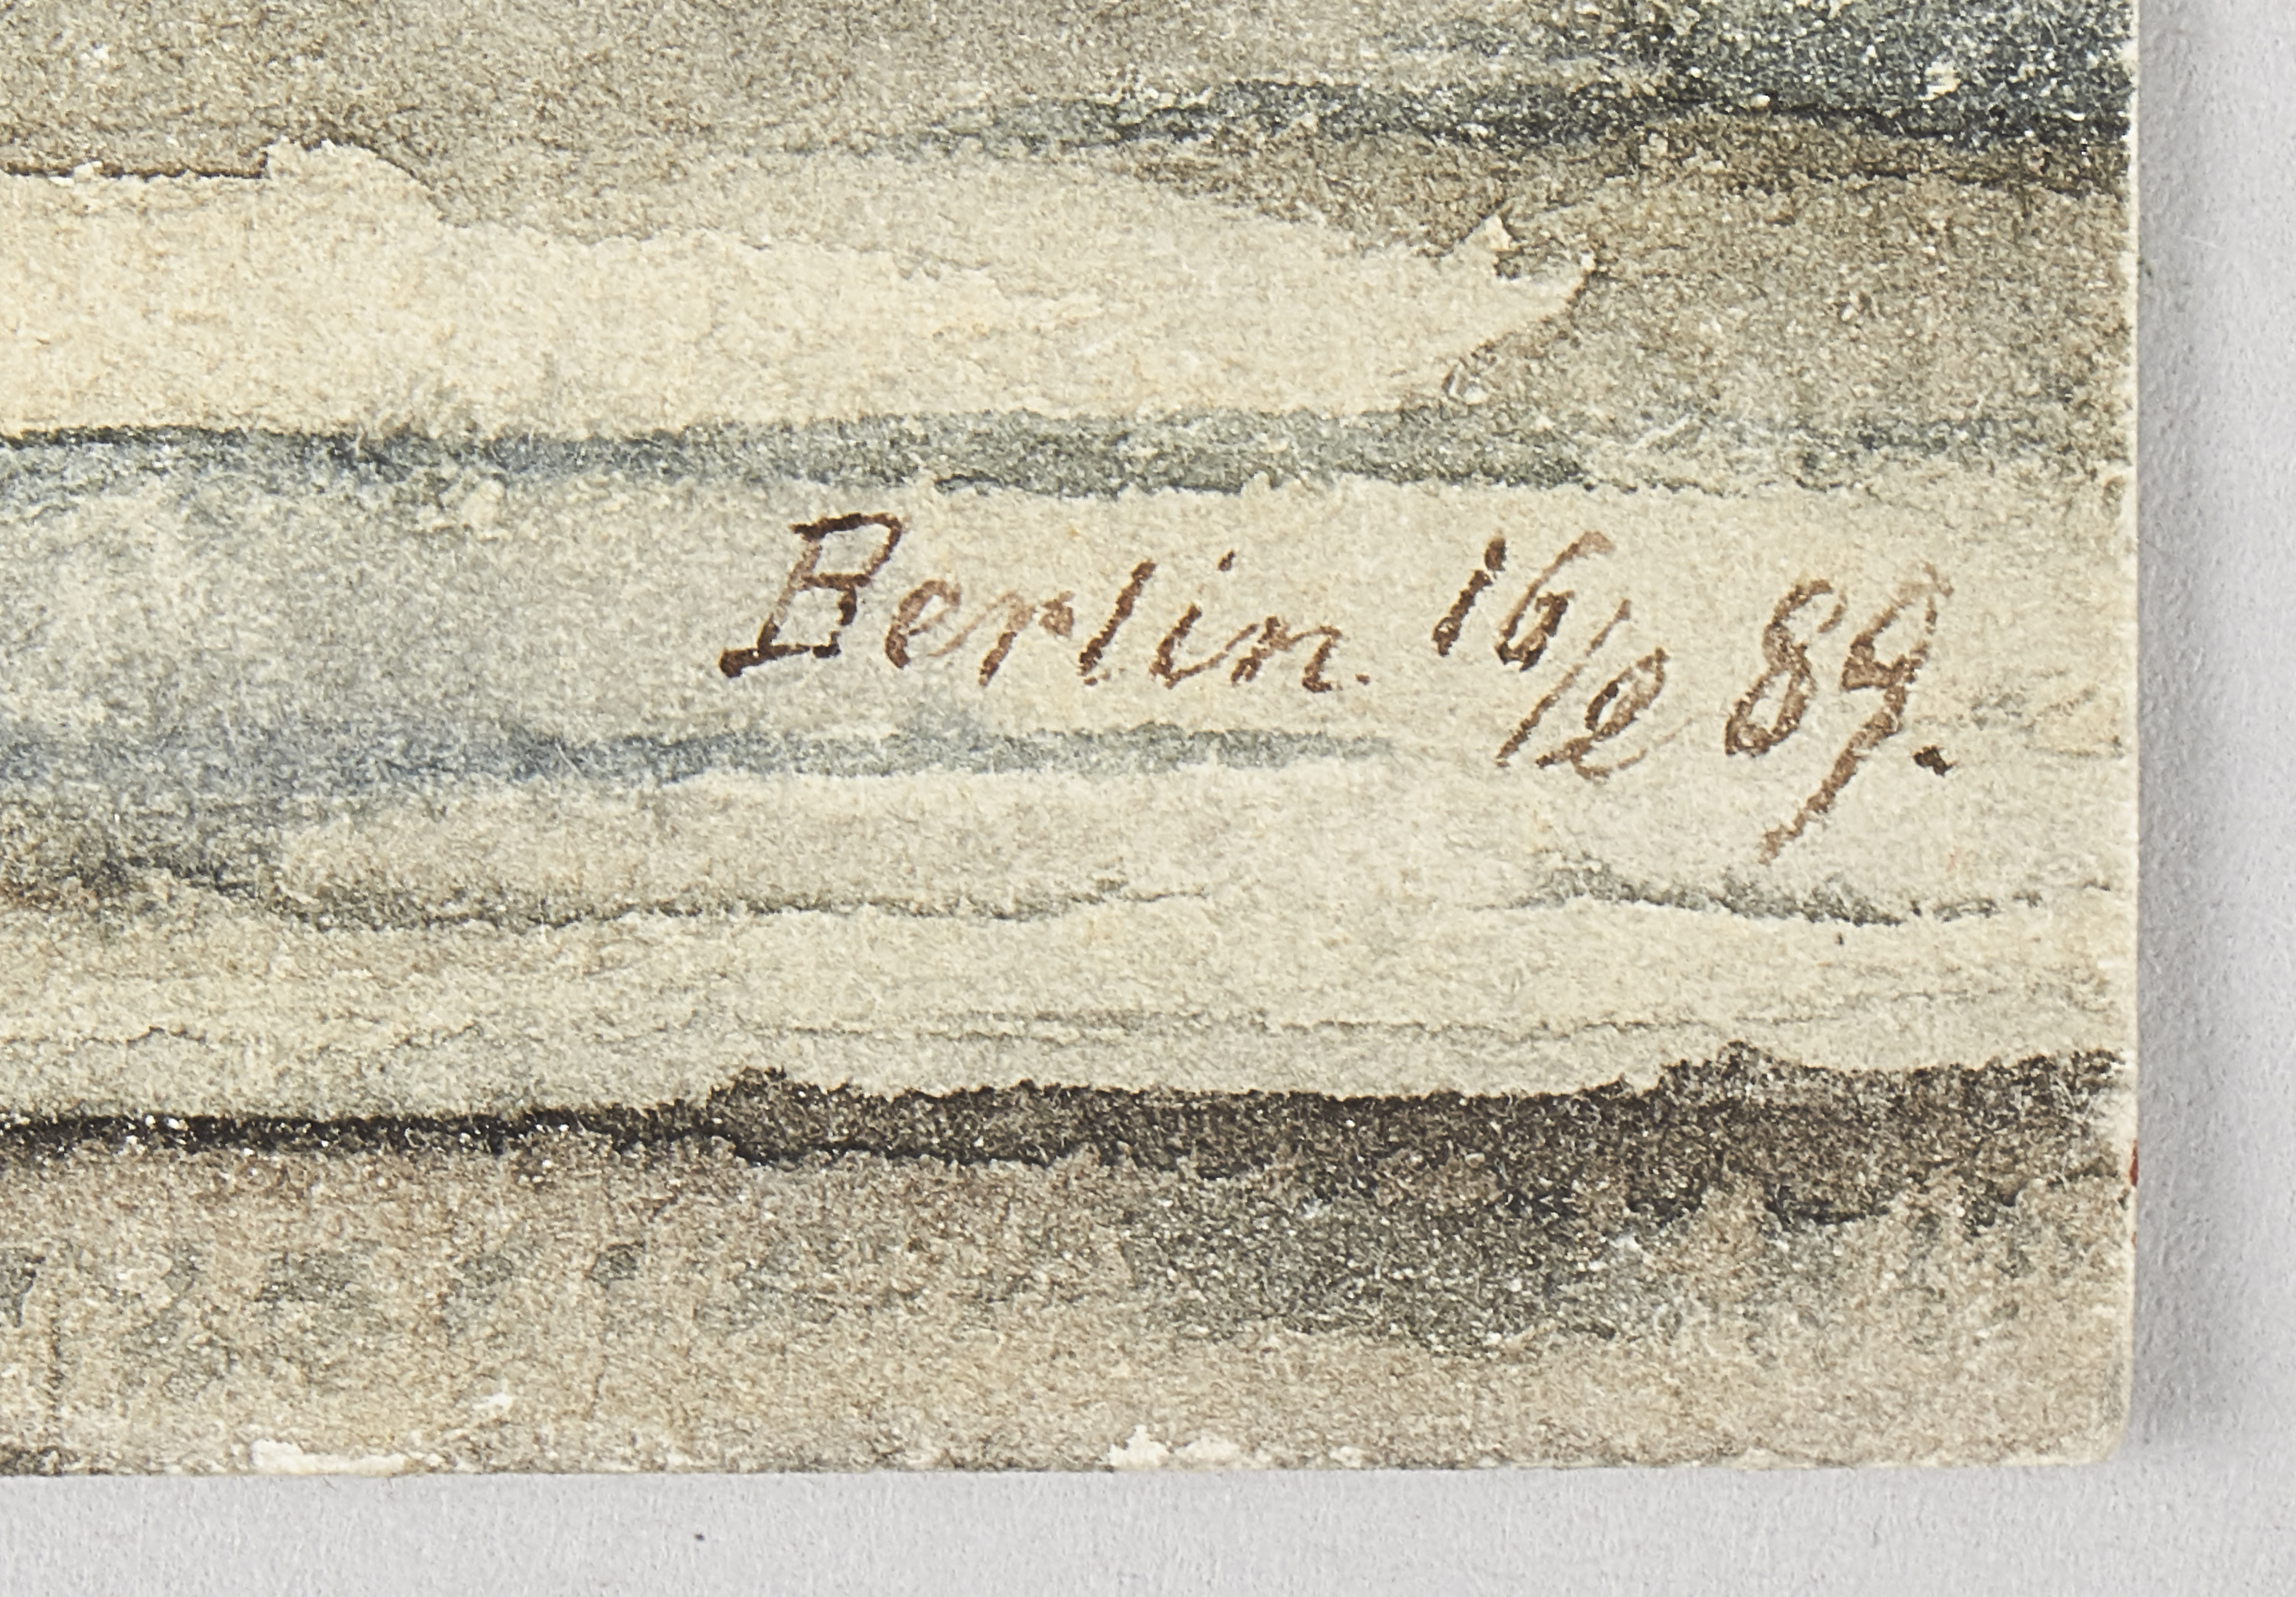 Berlin. 16/2 89.